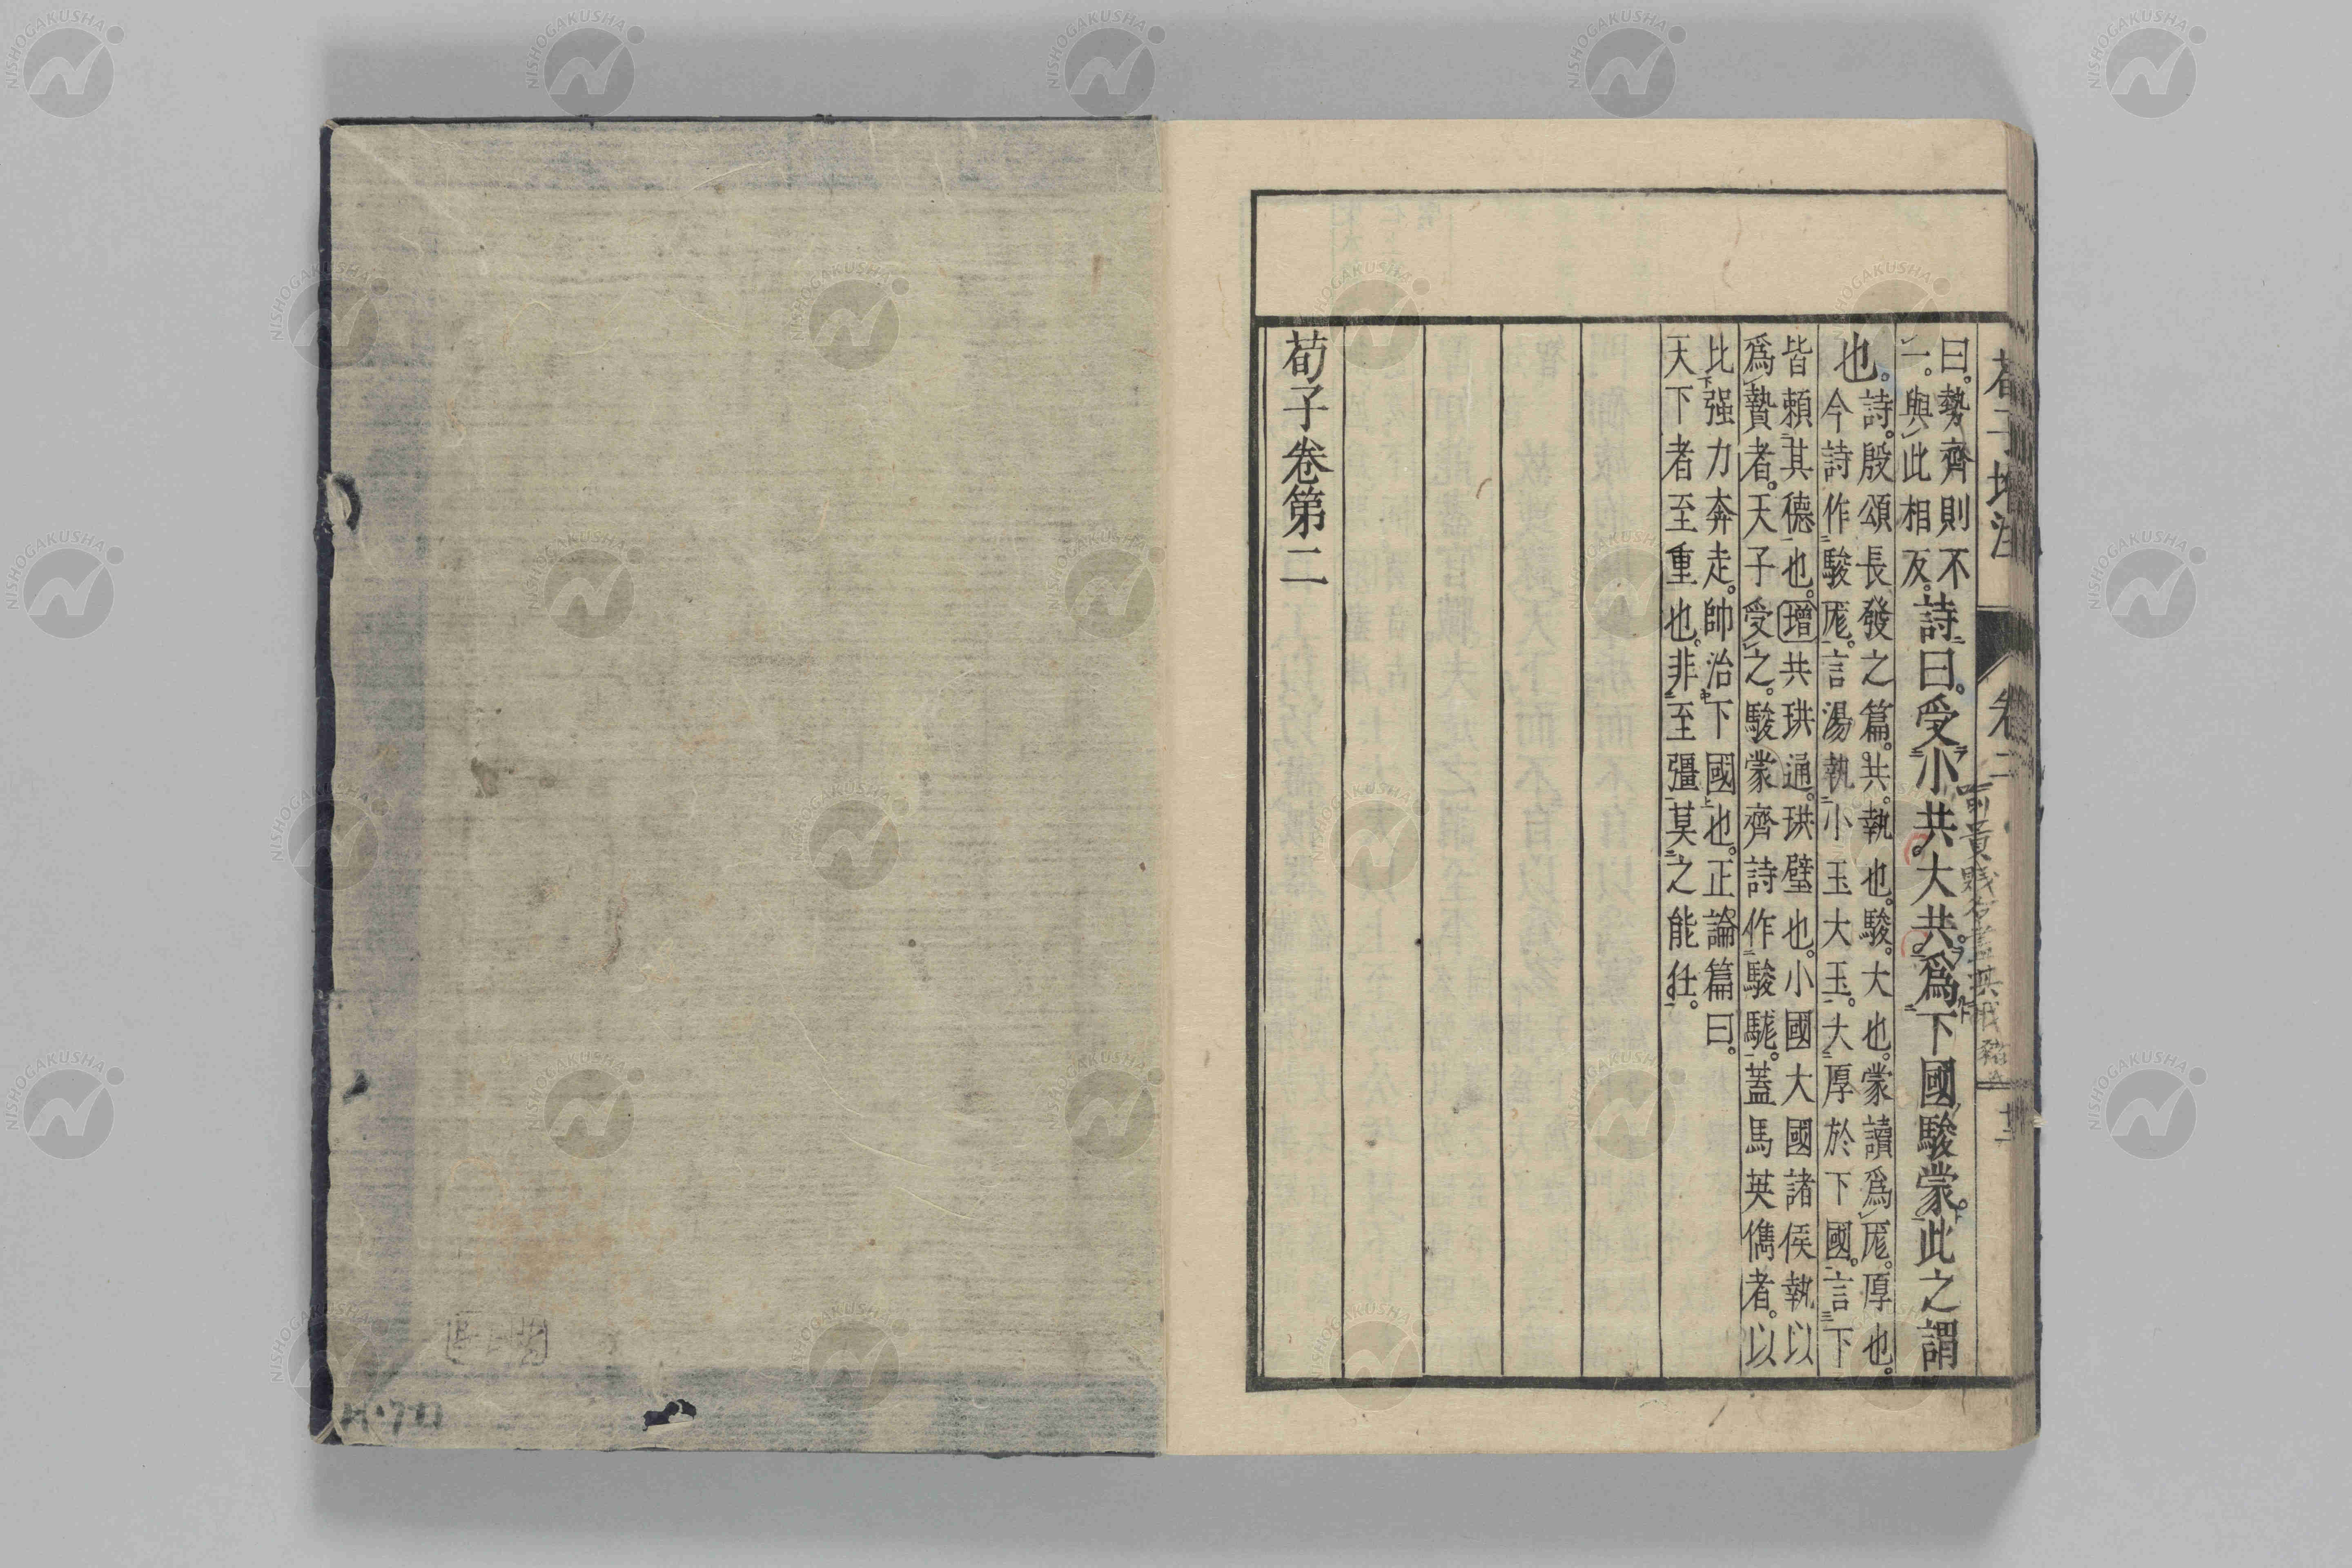 荀子増注 卷二
曰。勢齊則不
一。與此相反。
詩曰。受小共。大共。爲下國駿蒙。此之謂
也。
詩。殷頌長發之篇。共。執也。駿。大也。蒙讀爲厖。厚也。
今詩作駿厖。言湯執小玉大玉。大厚於下國。言下
皆賴其德也。增共珙通。珙璧也。小國大國諸侯執以
爲贄者。天子受之。駿蒙齊詩作駿駹。蓋馬英儁者。以
比强力奔走。帥治下國也。正論篇曰。
天下者至重也。非至彊莫之能任。
荀子卷第二
NISHOGAKUSHA